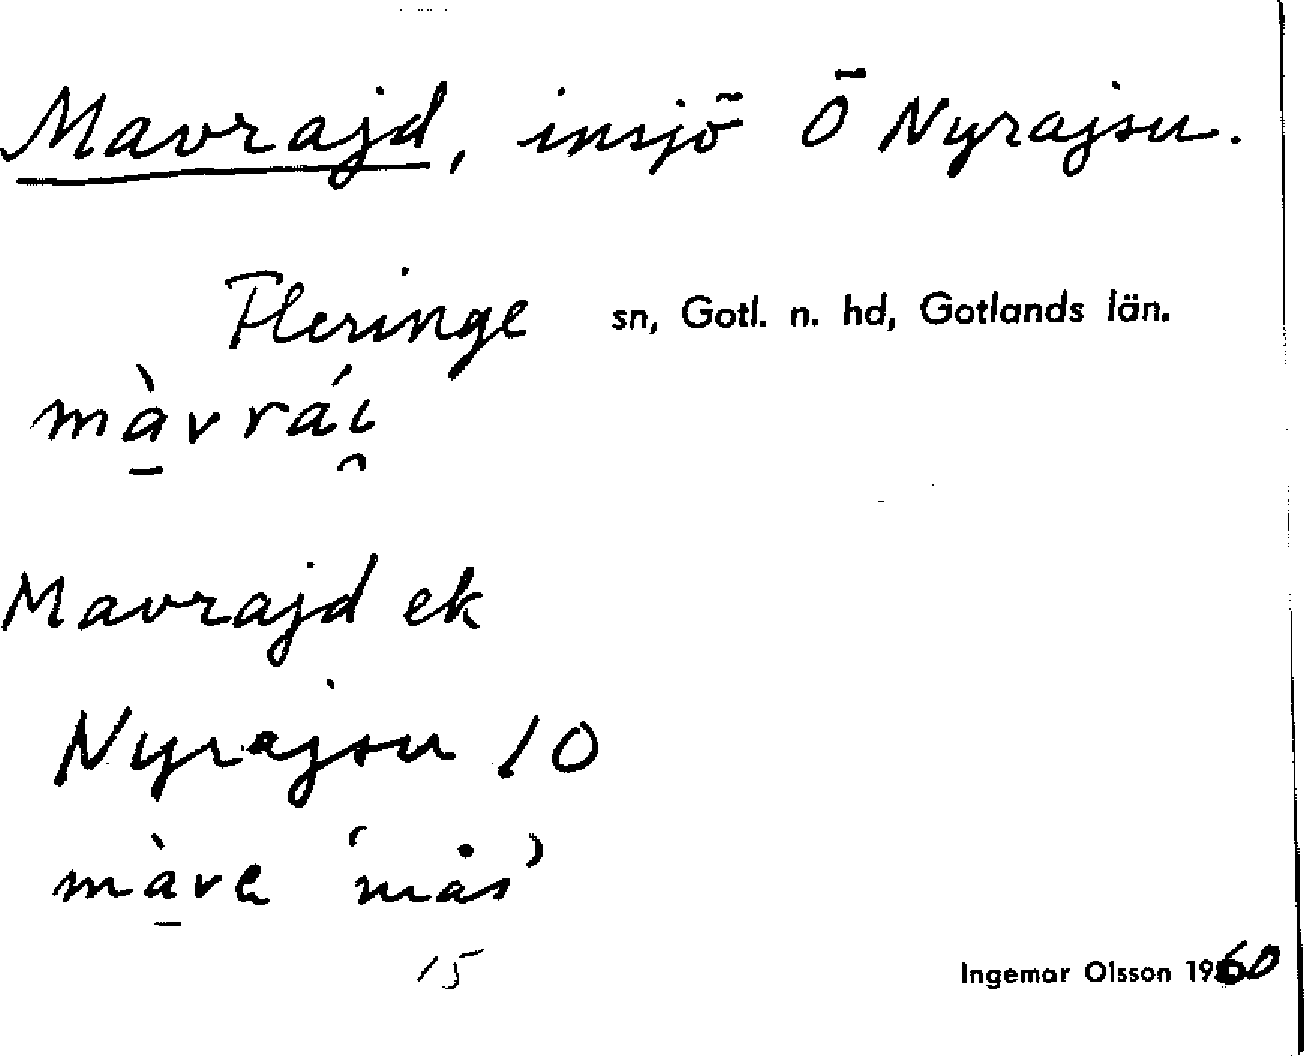 Mavrajd, insjö Ö Nyrajsu.
Fleringe sn, Gotl. n. hd, Gotlands län.
mà̱vrái̯
Mavrajd ek
Nyrajsu 10
mà̱va 'mås'
15
Ingemar Olsson 1960